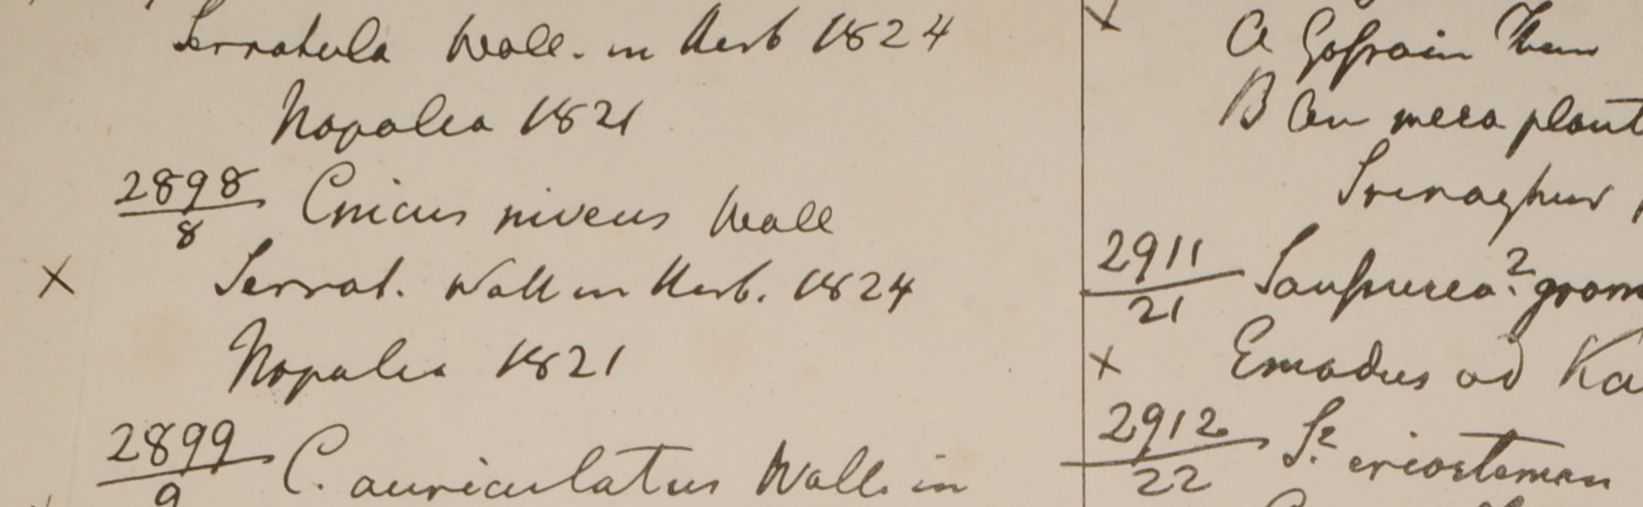 Serratula Wall. in Herb 1824
Napalia 1821
2898/8 Cnicus niveus Wall
x Serrat. Wall in Herb. 1824
Napalia 1821
2899/9 C. auriculatus Wall. in
x
a Gossain Than
B an mera plant
Srinaghur
2911/21 Saussurea? gram
x Emodus ad Ka
2912/22 S.? eriostemon